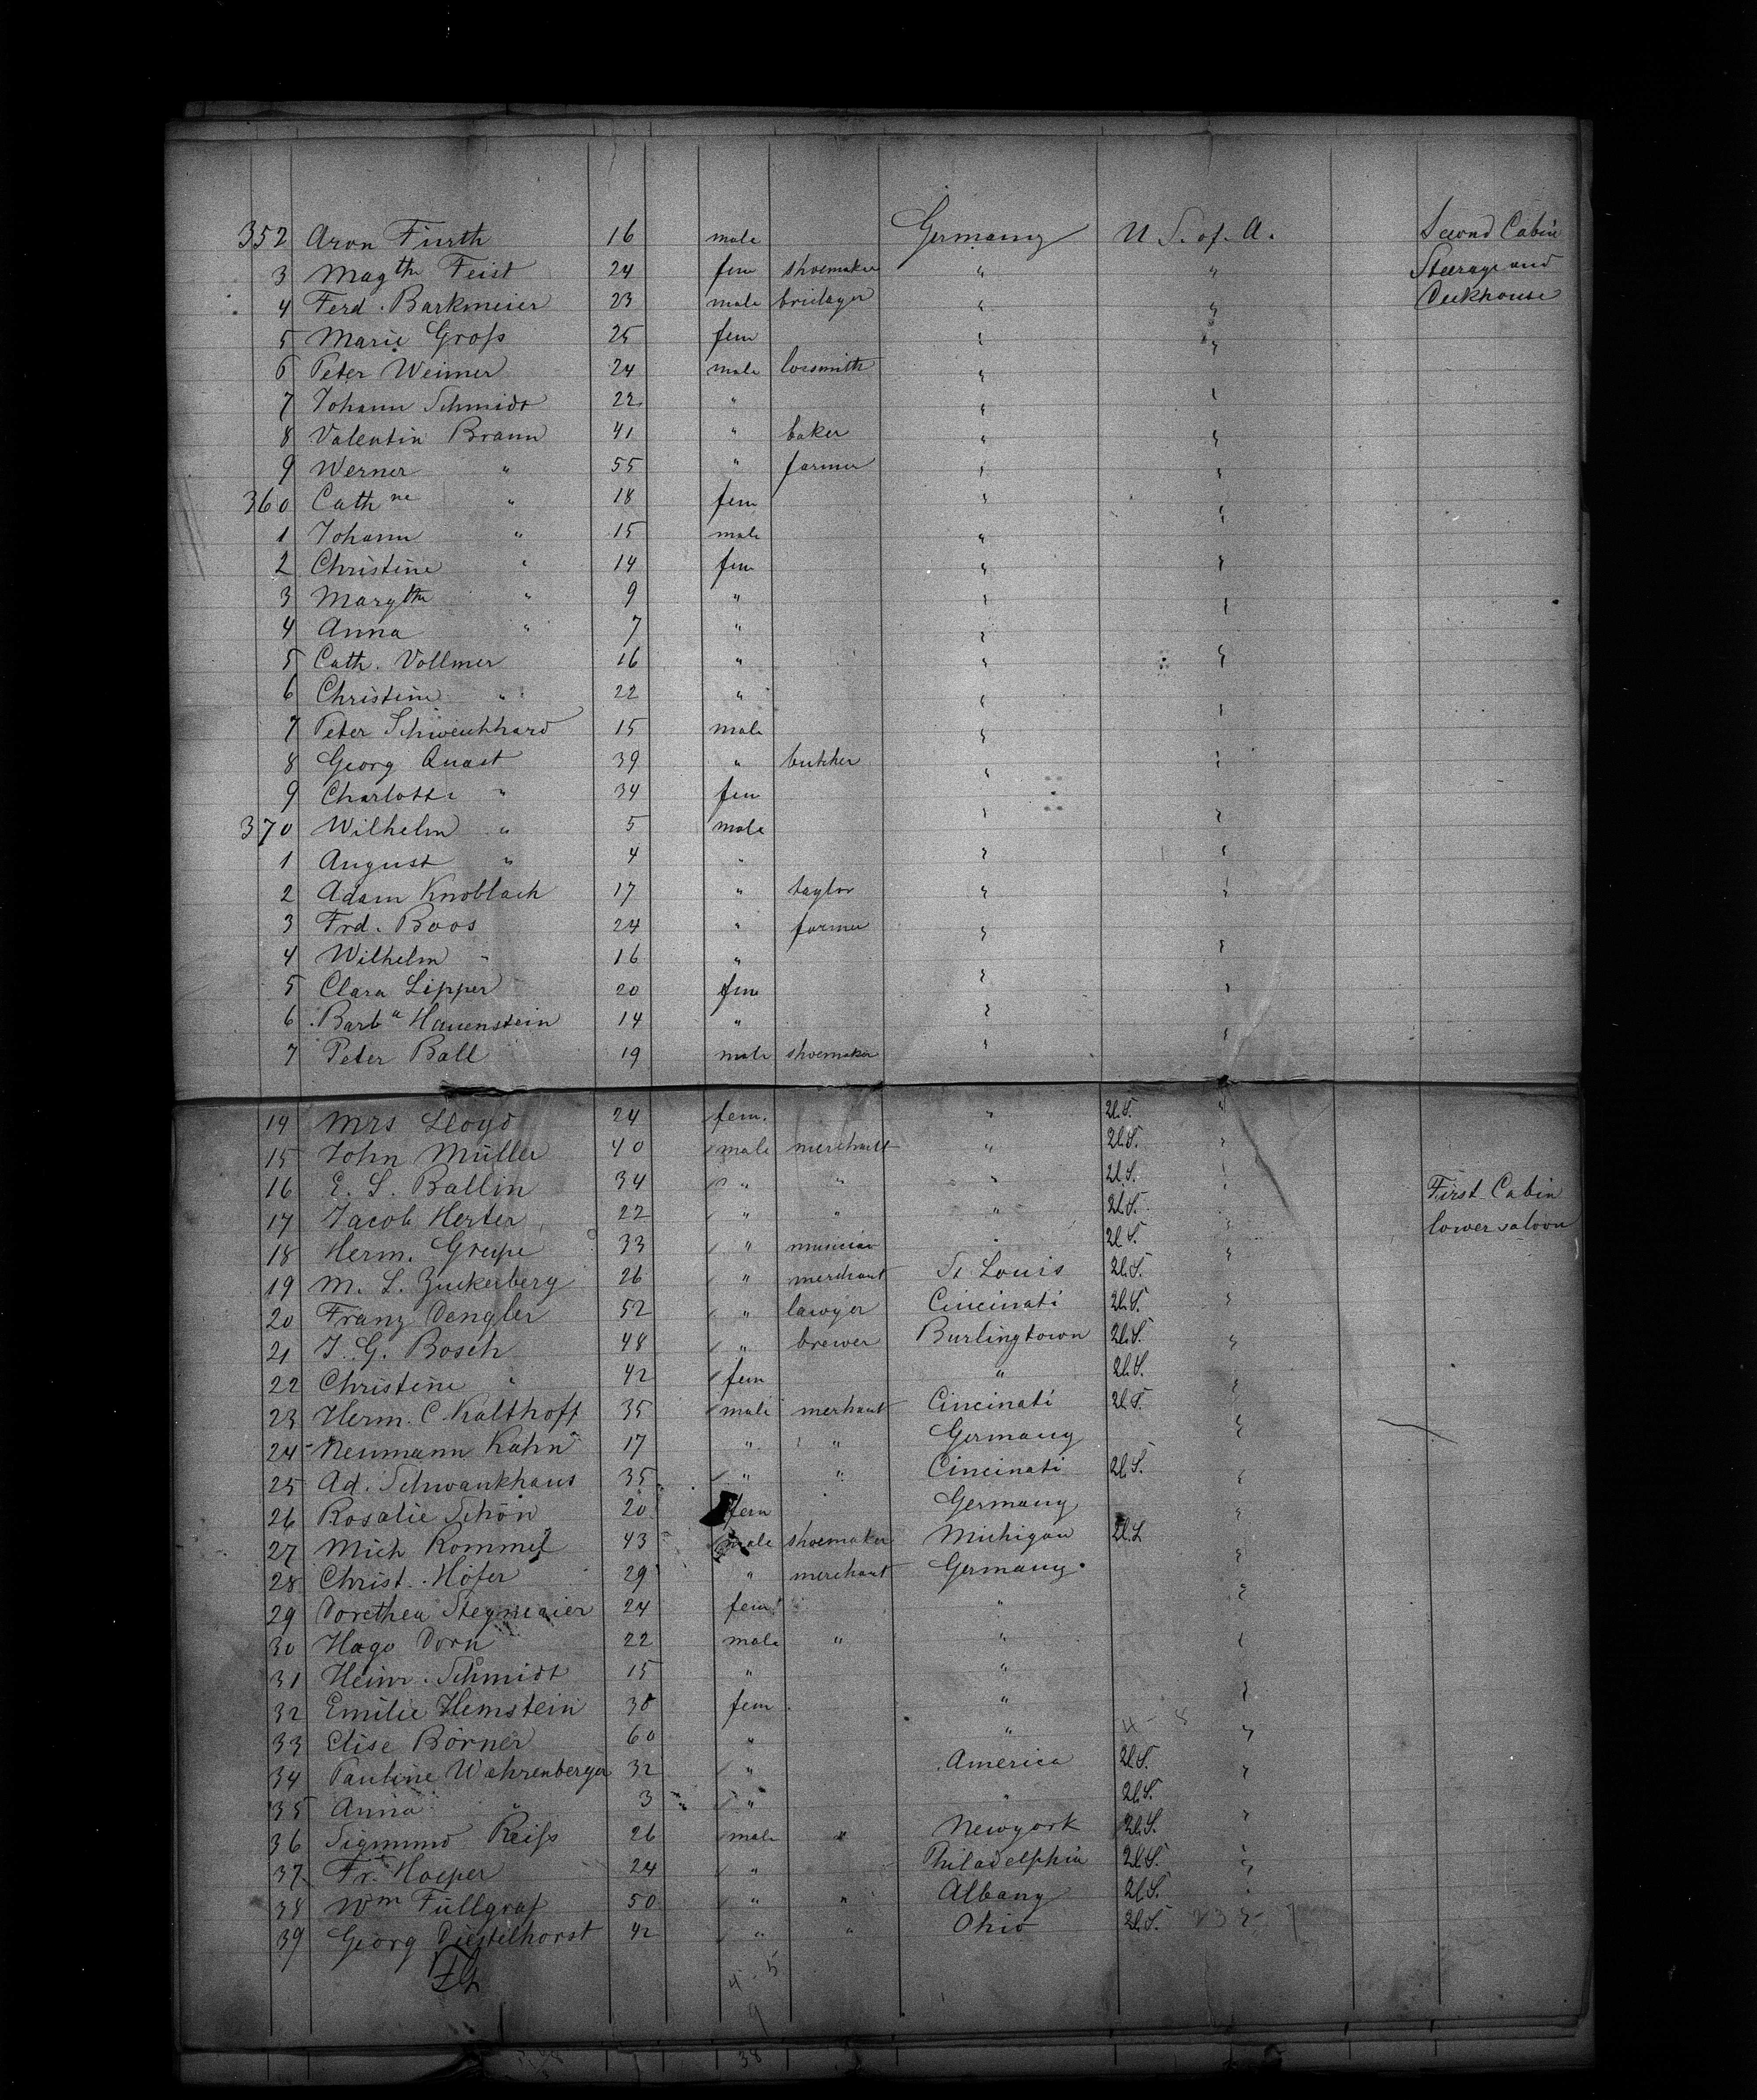 352 Aron Fürth 16 male Germany U. S. of. A. Second Cabin
3 Mag the Feist 24 fem shoemaker " " Steerage and
4 Ferd. Barkmeier 23 male brielager " " Deckhouse
5 Marie Groſs 25 fem " "
6 Peter Weimer 24 male locsmith " "
7 Johann Schmidt 22 " " "
8 Valentin Braun 41 " baker " "
9 Werner " 55 " farmer " "
360 Cath ne " 18 fem " "
1 Johann " 15 male " "
2 Christine " 14 fem " "
3 Marg the " 9 " " "
4 Anna " 7 " " "
5 Cath. Vollmer 16 " " "
6 Christine " 22 " " "
7 Peter Schweickhard 15 male " "
8 Georg Quast 39 " butcher " "
9 Charlotte " 34 fem " "
370 Wilhelm " 5 male " "
1 August " 4 " " "
2 Adam Knoblach 17 " taylor " "
3 Frd. Boos 24 " farmer " "
4 Wilhelm " 16 " " "
5 Clara Lipper 20 fem " "
6 Barb a Hauenstein 14 " " "
7 Peter Ball 19 male shoemaker " "
14 Mrs Lloyd 24 fem. " U.S. "
15 John Müller 40 male merchant " U.S. "
16 E. S. Ballin 34 " " " U.S. " First Cabin
17 Jacob Herter 22 " " " U.S. " lower saloon
18 Herm. Grupe 33 " musician " U.S. "
19 M. L. Zuckerberg 26 " merchant St Louis U.S. "
20 Franz Dengler 52 " lawyer Cincinati U.S. "
21 J. G. Bosch 48 " brewer Burlingtown U.S. "
22 Christine " 42 fem " U.S. "
23 Herm. C. Kalthoff 35 male merhant Cincinati U.S. "
24 Neumann Kahn 17 " " Germany "
25 Ad. Schwankhaus 35 " " Cincinati U.S. "
26 Rosalie Schön 20 fem Germany "
27 Mich Rommel 43 male shoemaker Michigan U.S. "
28 Christ. Höfer 29 " merchant Germany "
29 Dorethea Stegmaier 24 fem " "
30 Hugo Dorn 22 male " " "
31 Heinr. Schmidt 15 " " "
32 Emilie Hemstein 30 fem " "
33 Elise Börner 60 " " 4 - 8 "
34 Pauline Wahrenberger 32 " America U.S. "
35 Anna " 3 " " U.S.
36 Sigmund Reiſs 26 male " Newyork U.S. "
37 Fr. Hoeper 24 " Philadelphia U.S. "
38 Wm Füllgraf 50 " " Albany U.S. "
39 Georg Diestelhorst 42 " " Ohio U.S. "
4 - 5
9
38